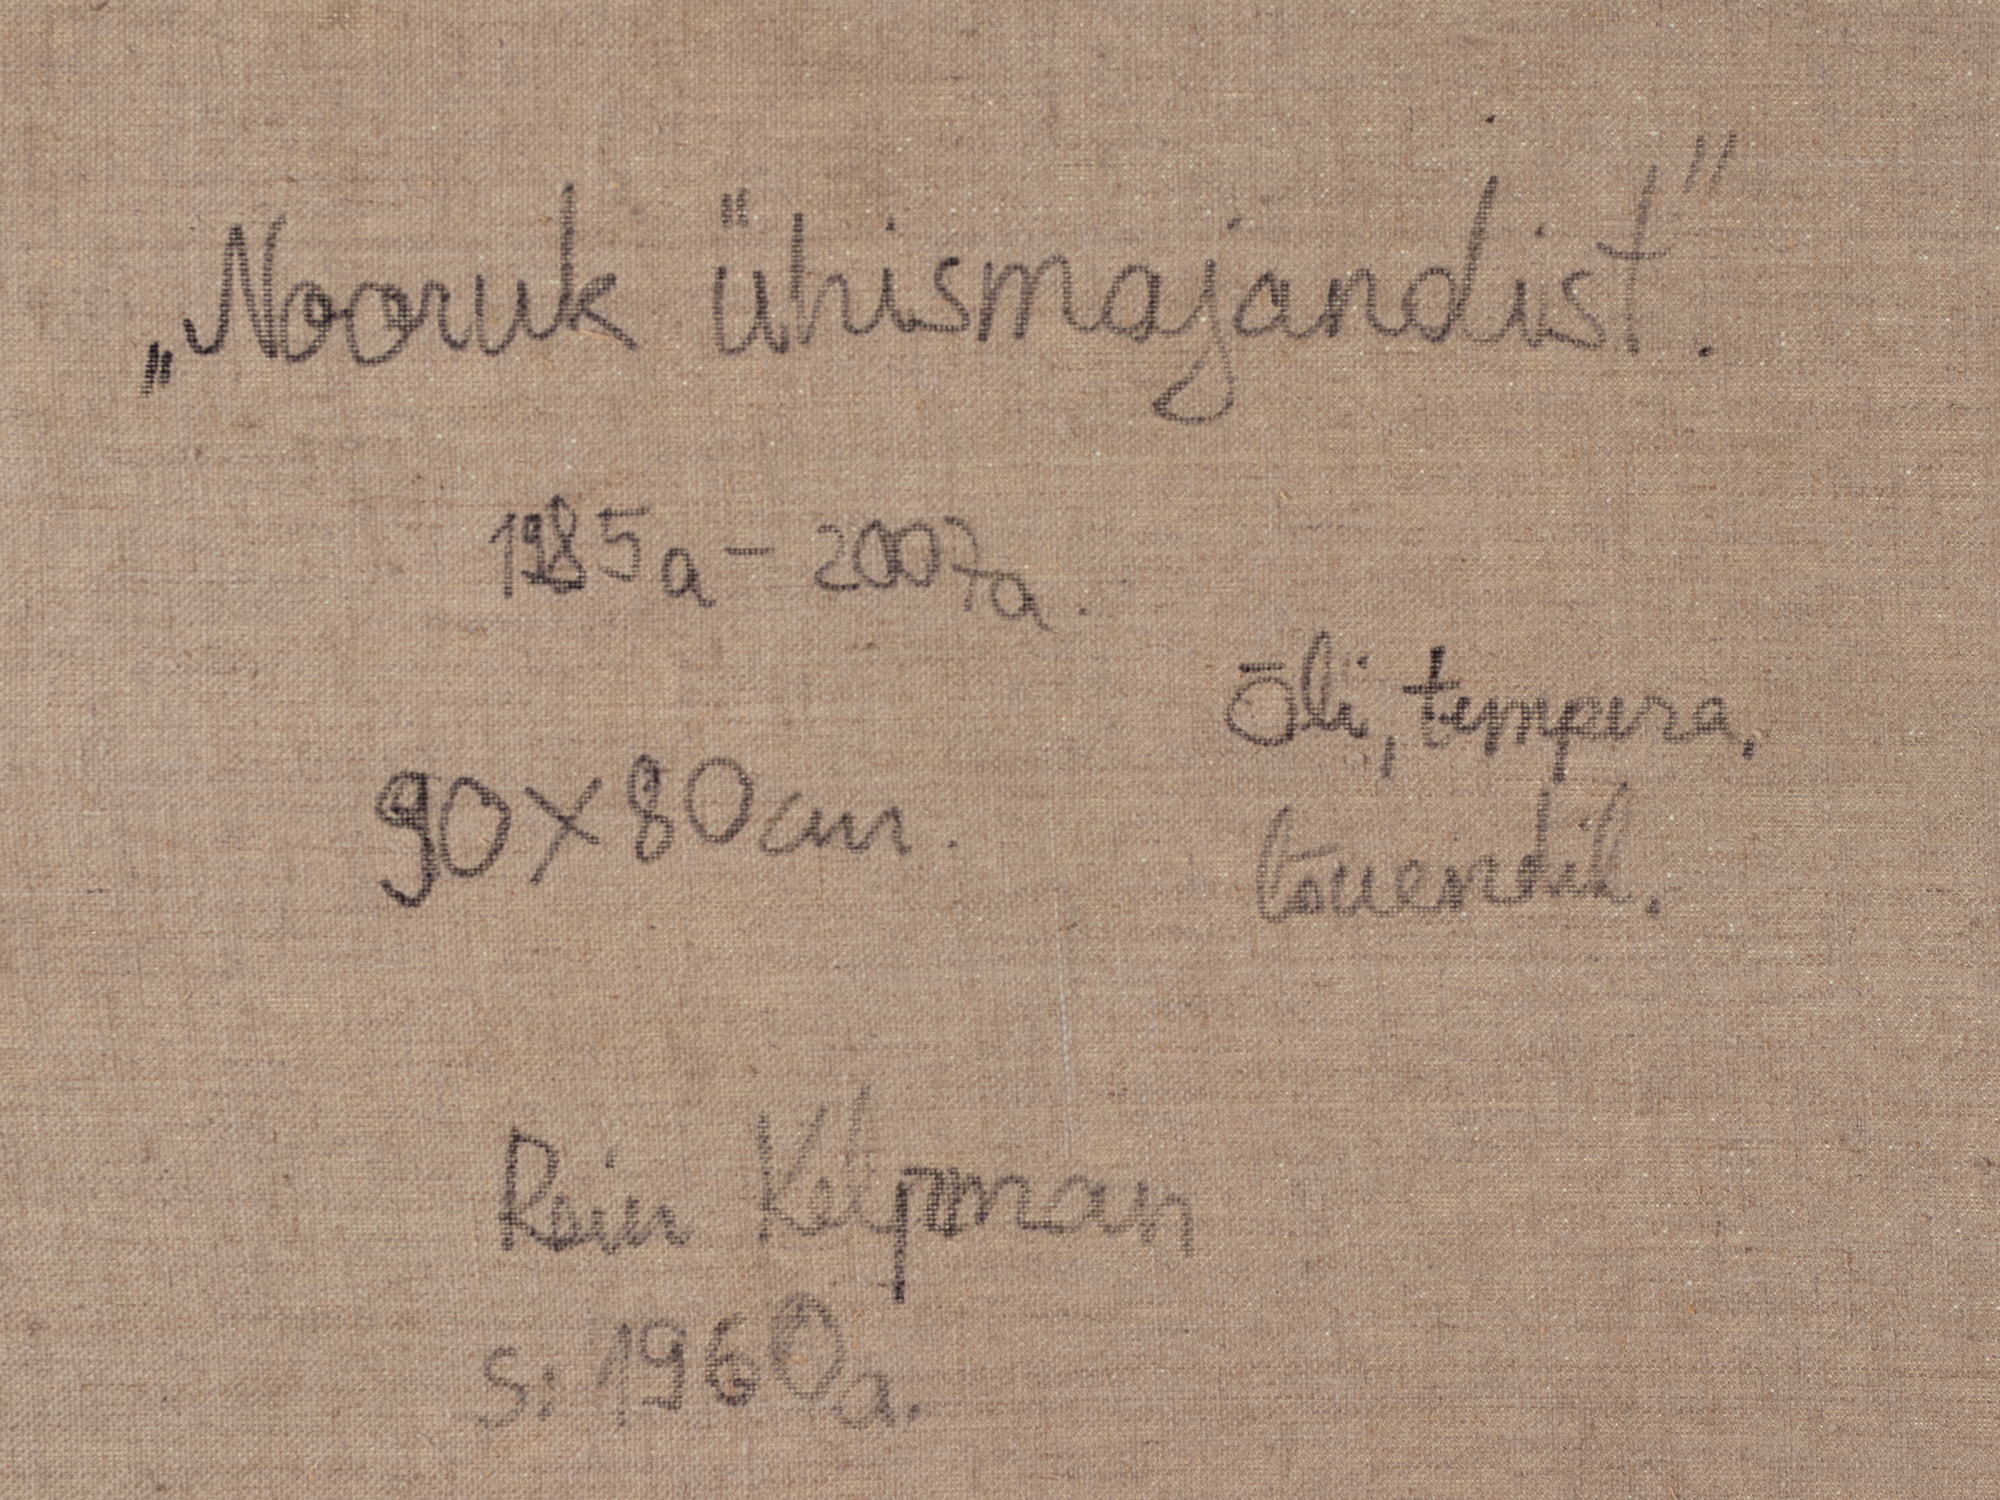 „Nooruk ühismajandist."
1985a - 2007a.
Õli, tempera,
90 x 80 cm.
lõuendil.
Rein Kelpman
s: 1960a.